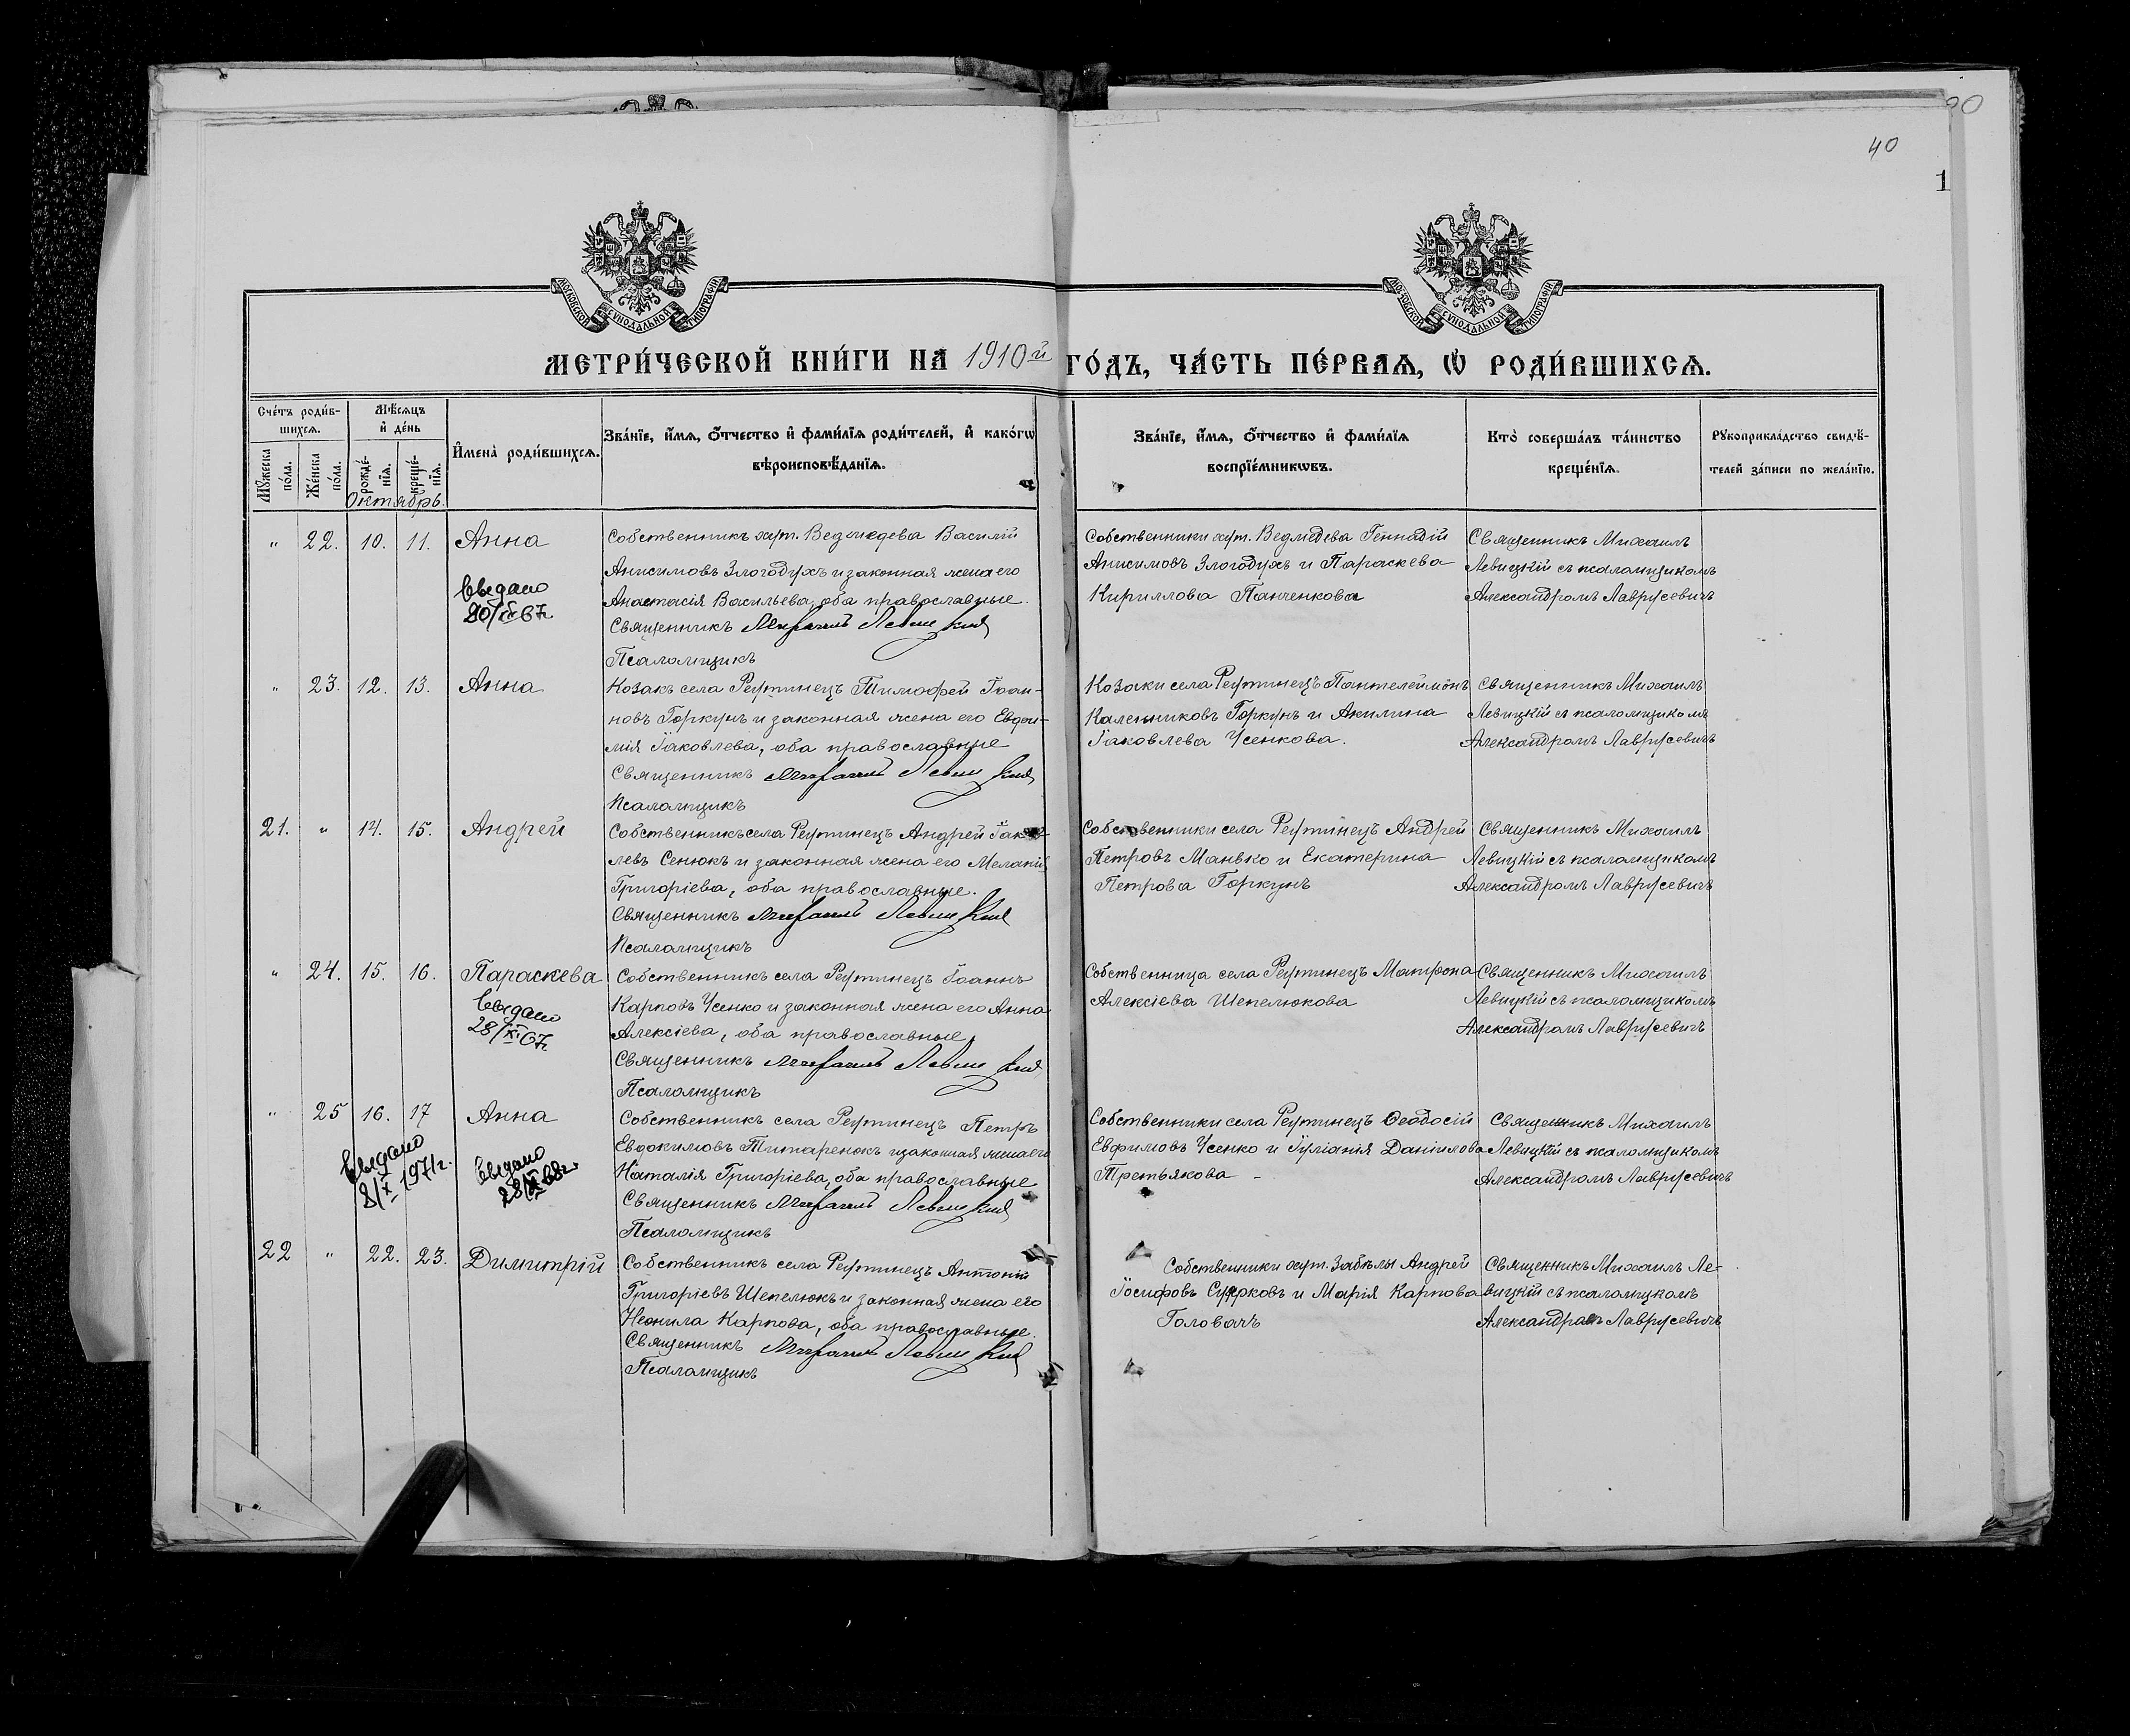 90
40
1
МОСКОВСКОЙ СУНОДАЛЬНОЙ ТИПОГРАФІИ
МОСКОВСКОЙ СУНОДАЛЬНОЙ ТИПОГРАФІИ
МЕТРИ́ЧЕСКОЙ КНИ́ГИ НА 1910й ГО́ДЪ, ЧА́СТЬ ПЕ́РВАѦ, Ѡ РОДИ́ВШИХСѦ.
Сче́тъ роди́в-
шихсѧ.
Мꙋжеска по́ла.
Же́нска по́ла.
Мѣ́сѧцъ
и҆ де́нь
рожде́-
нїѧ.
креще́-
нїѧ.
И҆мена̀ роди́вшихсѧ.
Зва́нїе, и҆́мѧ, о҆́тчество и҆ фами́лїѧ роди́телей, и҆ како́гѡ
вѣроисповѣ́данїѧ.
Зва́нїе, и҆́мѧ, о҆́тчество и҆ фами́лїѧ
воспрїе́мникѡвъ.
Кто̀ соверша́лъ та́инство
креще́нїѧ.
Рꙋкоприкла́дство свидѣ́-
телей за́писи по жела́нїю.
Октябрь
" 22. 10. 11. Анна
Собственникъ хут. Ведмедева Василій
Анисимовъ Злогодухъ и законная жена его
Анастасія Васильева, оба православные.
Священникъ Михаилъ Левицкій
Псаломщикъ
Собственники хут. Ведмедева Геннадій
Анисимовъ Злогодухъ и Параскева
Кириллова Панченкова
Священникъ Михаилъ
Левицкій съ псаломщикомъ
Александромъ Лаврусевичъ
" 23. 12. 13. Анна
Козакъ села Реутинецъ Тимофей Іоан-
новъ Горкунъ и законная жена его Евфи-
мія Іаковлева, оба православные
Священникъ Михаилъ Левицкій
Псаломщикъ
Козаки села Реутинецъ Пантелеймонъ
Каленниковъ Горкунъ и Акилина
Іаковлева Усенкова.
Священникъ Михаилъ
Левицкій съ псаломщикомъ
Александромъ Лаврусевичъ
21. " 14. 15. Андрей
Собственникъ села Реутинецъ Андрей Іаков-
левъ Сенюкъ и законная жена его Меланія
Григоріева, оба православные.
Священникъ Михаилъ Левицкій
Псаломщикъ
Собственники села Реутинецъ Андрей
Петровъ Манвко и Екатерина
Петрова Горкунъ
Священникъ Михаилъ
Левицкій съ псаломщикомъ
Александромъ Лаврусевичъ
" 24. 15. 16. Параскева
Собственникъ села Реутинецъ Іоаннъ
Карповъ Усенко и законная жена его Анна
Алексіева, оба православные
Священникъ Михаилъ Левицкій
Псаломщикъ
Собственница села Реутинецъ Матрона
Алексіева Шепелюкова
Священникъ Михаилъ
Левицкій съ псаломщикомъ
Александромъ Лаврусевичъ
" 25 16. 17 Анна
8/X 1971г.
Собственникъ села Реутинецъ Петръ
Евдокимовъ Титаренокъ и законная жена его
Наталія Григоріева, оба православные
Священникъ Михаилъ Левицкій
Псаломщикъ
Собственники села Реутинецъ Ѳеодосій
Евфимовъ Усенко и Іуліанія Даніилова
Третьякова
Священникъ Михаилъ
Левицкій съ псаломщикомъ
Александромъ Лаврусевичъ
22 " 22. 23. Димитрій
Собственникъ села Реутинецъ Антоній
Григоріевъ Шепелюкъ и законная жена его
Неонила Карпова, оба православные.
Священникъ Михаилъ Левицкій
Псаломщикъ
Собственники хут. Забѣлы Андрей
Іосифовъ Сурковъ и Марія Карпова
Головачъ
Священникъ Михаилъ Ле-
вицкій съ псаломщикомъ
Александромъ Лаврусевичъ